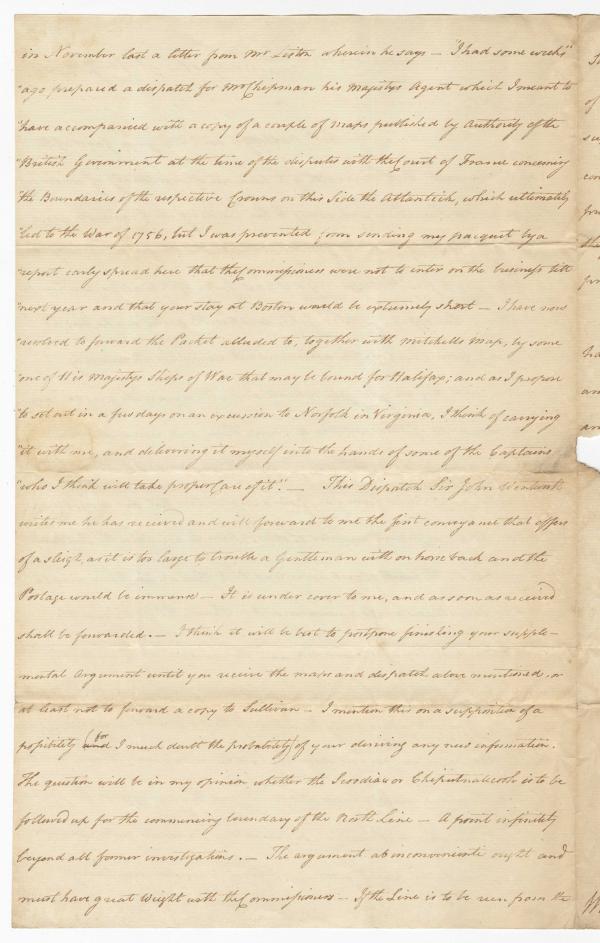 in November last a letter from Mr Liston wherein he says — "I had some weeks
"ago prepared a dispatch for Mr Chipman his Majestys Agent which I meant to
"have accompanied with a copy of a couple of maps published by Authority of the
"British Government at the time of the disputes with the Court of France concerning
"the Boundaries of the respective Crowns on this Side the Atlantick, which ultimately
"led to the War of 1756, but I was prevented from sending my pacquet by a
"report early spread here that the Commissioners were not to enter on the business till
"next year and that your stay at Boston would be extremely short — I have now
"resolved to forward the Packet alluded to, together with Mitchells Map, by some
"one of His Majestys Ships of War that may be bound for Halifax; and as I propose
"to set out in a few days on an excursion to Norfolk in Virginia, I think of carrying
"it with me, and delivering it myself into the hands of some of the Captains
"who I think will take proper Care of it". — This Dispatch Sir John Wentworth
writes me he has received and will forward to me the first conveyance that offers
of a sleigh, as it is too large to trouble a Gentleman with on horse back and the
Postage would be immense — It is under cover to me, and as soon as received
shall be forwarded. — I think it will be best to postpone finishing your supple-
mental Argument until you receive the maps and dispatch above mentioned, or
at least not to forward a copy to Sullivan — I mention this on a supposition of a
possibility (for I much doubt the probability) of your deriving any new information.
The question will be in my opinion whether the Scoodiac or Cheputnatecook is to be
followed up for the commencing boundary of the North Line — A point infinitely
beyond all former investigations. — The argument ab inconvenienti ought and
must have great Weight with the Commissioners — If the Line is to be run from the